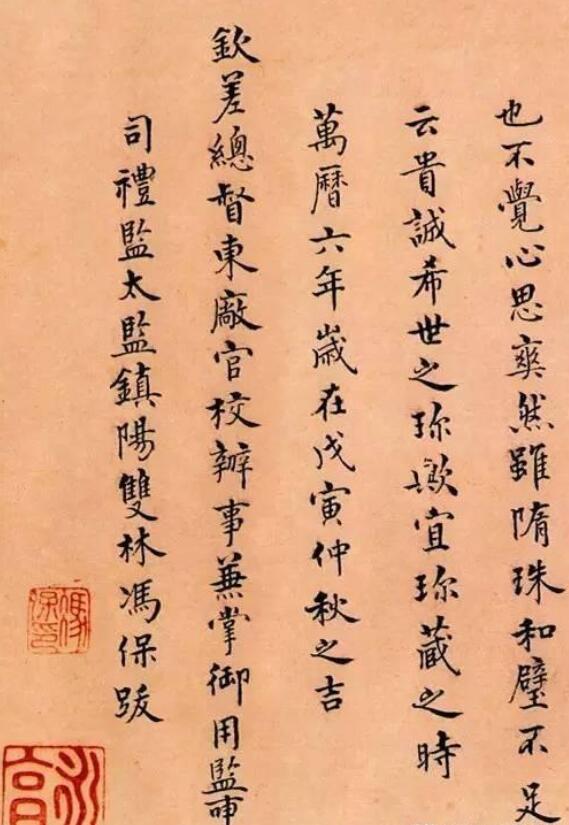 也不覺心思爽然雖隋珠和璧不足
云貴誠希世之珎歟宜珎藏之時
萬曆六年歲在戊寅仲秋之吉
欽差總督東廠官校辦事兼掌御用監
司禮監太監鎮陽雙林馮保跋
馮保